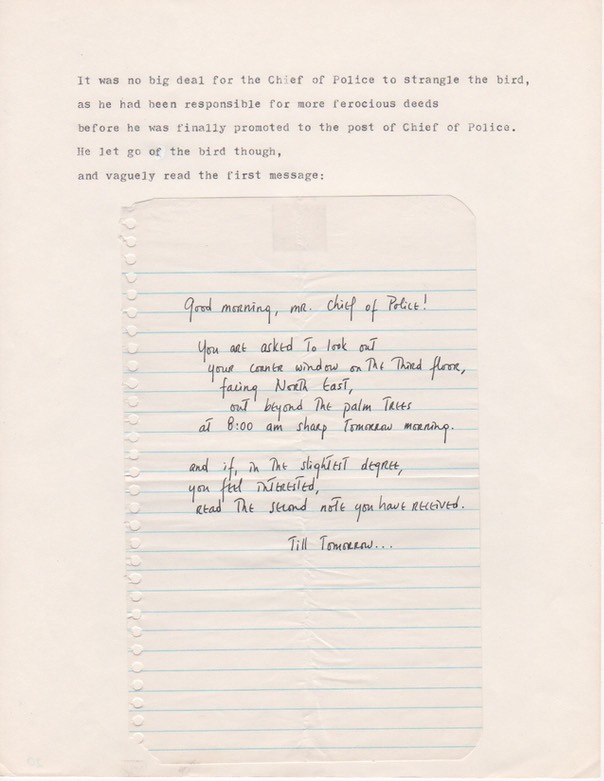 It was no big deal for the Chief of Police to strangle the bird,
as he had been responsible for more ferocious deeds
before he was finally promoted to the post of Chief of Police.
He let go of the bird though,
and vaguely read the first message:
Good morning, mr. Chief of Police!
You are asked to look out
your corner window on the third floor,
facing North East,
out beyond the palm trees
at 8:00 am sharp tomorrow morning.
and if, in the slightest degree,
you feel interested,
read the second note you have received.
Till tomorrow...